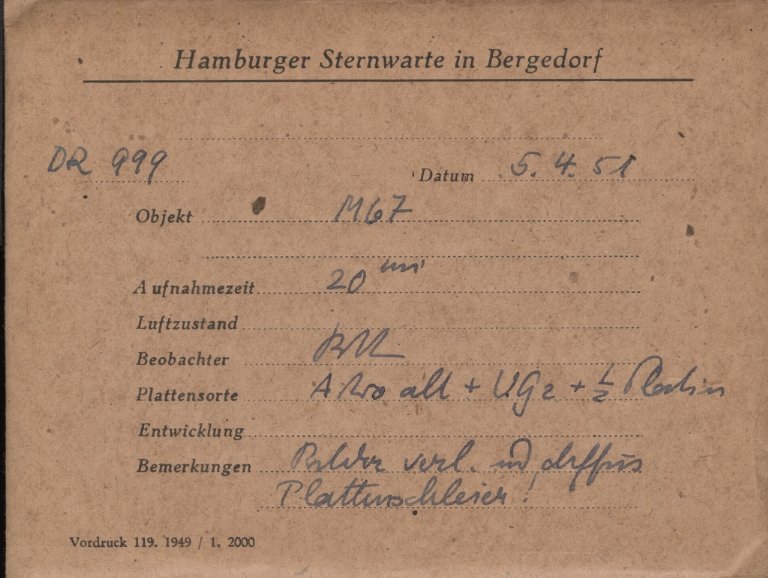 Hamburger Sternwarte in Bergedorf
DR 999 Datum 5. 4. 51
Objekt M67
Aufnahmezeit 20 min
Luftzustand
Beobachter
Plattensorte Astro alt + UG2 + ½ Platin
Entwicklung
Bemerkungen Bilder verl. und diffus
Plattenschleier!
Vordruck 119. 1949 / 1. 2000